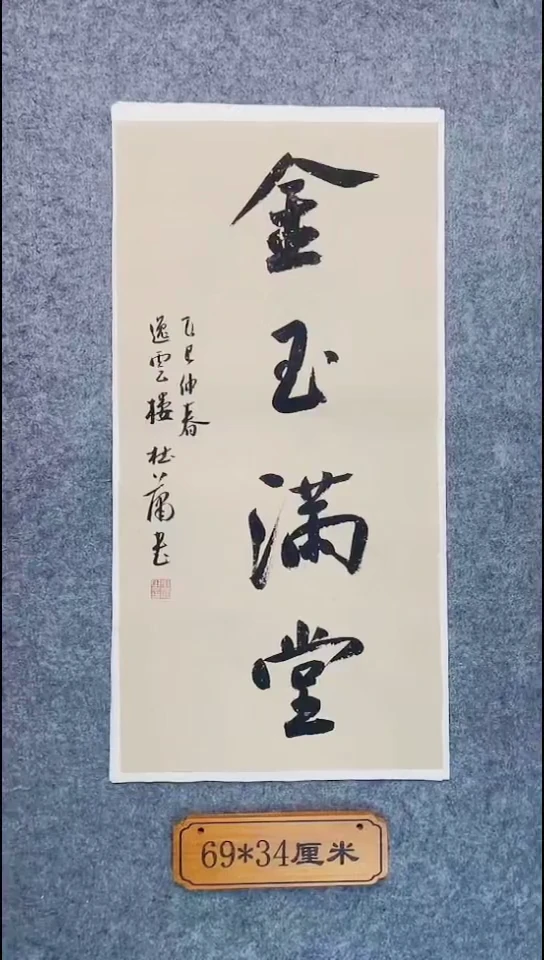 金玉满堂
乙巳仲春
逸雲楼 杜蕭书
69*34厘米